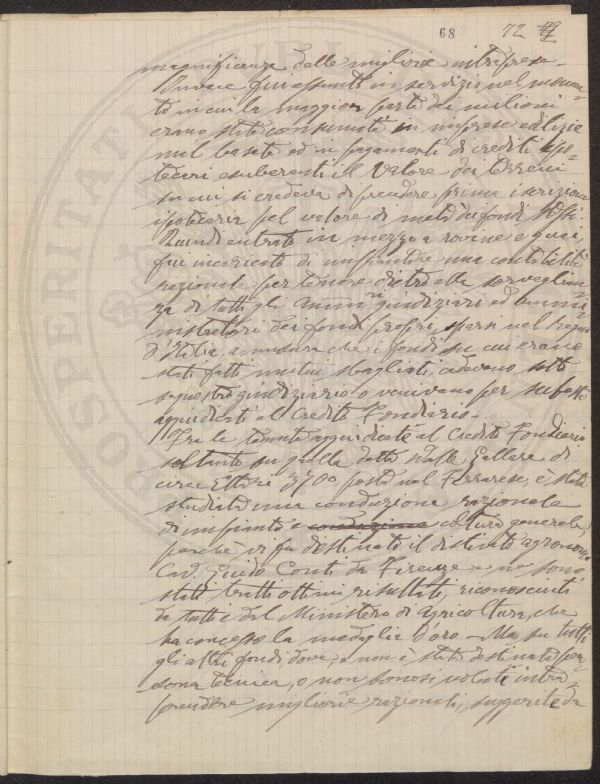 68 72
magnificenza delle migliorie intraprese.
Invece fui assunto in servizio nel momen-
to in cui la maggior parte dei milioni
erano stati consumati in imprese edilizie
mal basate ed in pagamenti di crediti ipo-
tecari esuberanti il valore dei terreni
su cui si credeva di prendere prima iscrizione
ipotecaria pel valore di metà dei fondi stessi.
Quindi entrato in mezzo a rovine e guai,
fui incaricato di impiantare una contabilità
razionale per tenere dietro alla sorveglian-
za di tutti gli Amm.ri giudiziari ed ammi-
nistratori dei fondi propri, sparsi nel Regno
d'Italia, a misura che i fondi su cui erano
stati fatti mutui sbagliati, cadevano sotto
sequestro giudiziario o venivano per subaste
aggiudicati al Credito Fondiario.
Fra le tenute aggiudicate al Credito Fondiario
soltanto su quella detta Valle Gallare di
circa Ettari 3700 posta nel Ferrarese, è stata
studiata una conduzione razionale
di impianto e coltura generale,
perchè vi fu destinato il distinto agronomo
Cav. Guido Conti da Firenze e vi sono
stati tratti ottimi risultati, riconosciuti
da tutti e dal Ministero di Agricoltura, che
ha concesso la medaglia d'oro. Ma su tutti
gli altri fondi dove, o non è stata destinata per-
sona tecnica, o non sonosi volute intra-
prendere migliorie razionali, suggerite da